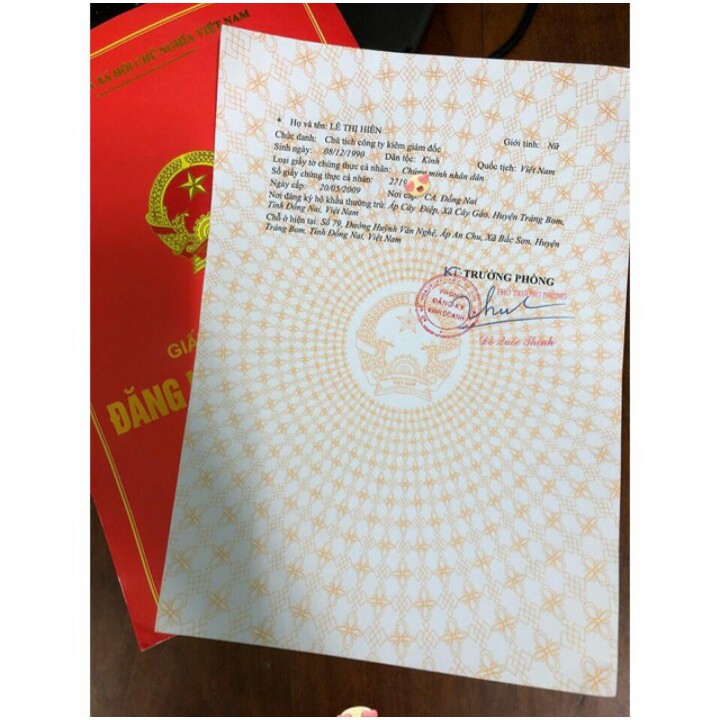 XÃ HỘI CHỦ NGHĨA VIỆT NAM
GIẤ
ĐĂNG
* Họ và tên: LÊ THỊ HIÊN Giới tính: Nữ
Chức danh: Chủ tịch công ty kiêm giám đốc
Sinh ngày: 08/12/1990 Dân tộc: Kinh Quốc tịch: Việt Nam
Loại giấy tờ chứng thực cá nhân: Chứng minh nhân dân
Số giấy chứng thực cá nhân: 2719
Ngày cấp: 20/05/2009 Nơi cấp: CA. Đồng Nai
Nơi đăng ký hộ khẩu thường trú: Ấp Cây Điệp, Xã Cây Gáo, Huyện Trảng Bom,
Tỉnh Đồng Nai, Việt Nam
Chỗ ở hiện tại: Số 79, Đường Huỳnh Văn Nghệ, Ấp An Chu, Xã Bắc Sơn, Huyện
Trảng Bom, Tỉnh Đồng Nai, Việt Nam
KT. TRƯỞNG PHÒNG
PHÓ TRƯỞNG PHÒNG
PHÒNG
ĐĂNG KÝ
KINH DOANH
Đỗ Quốc Thịnh